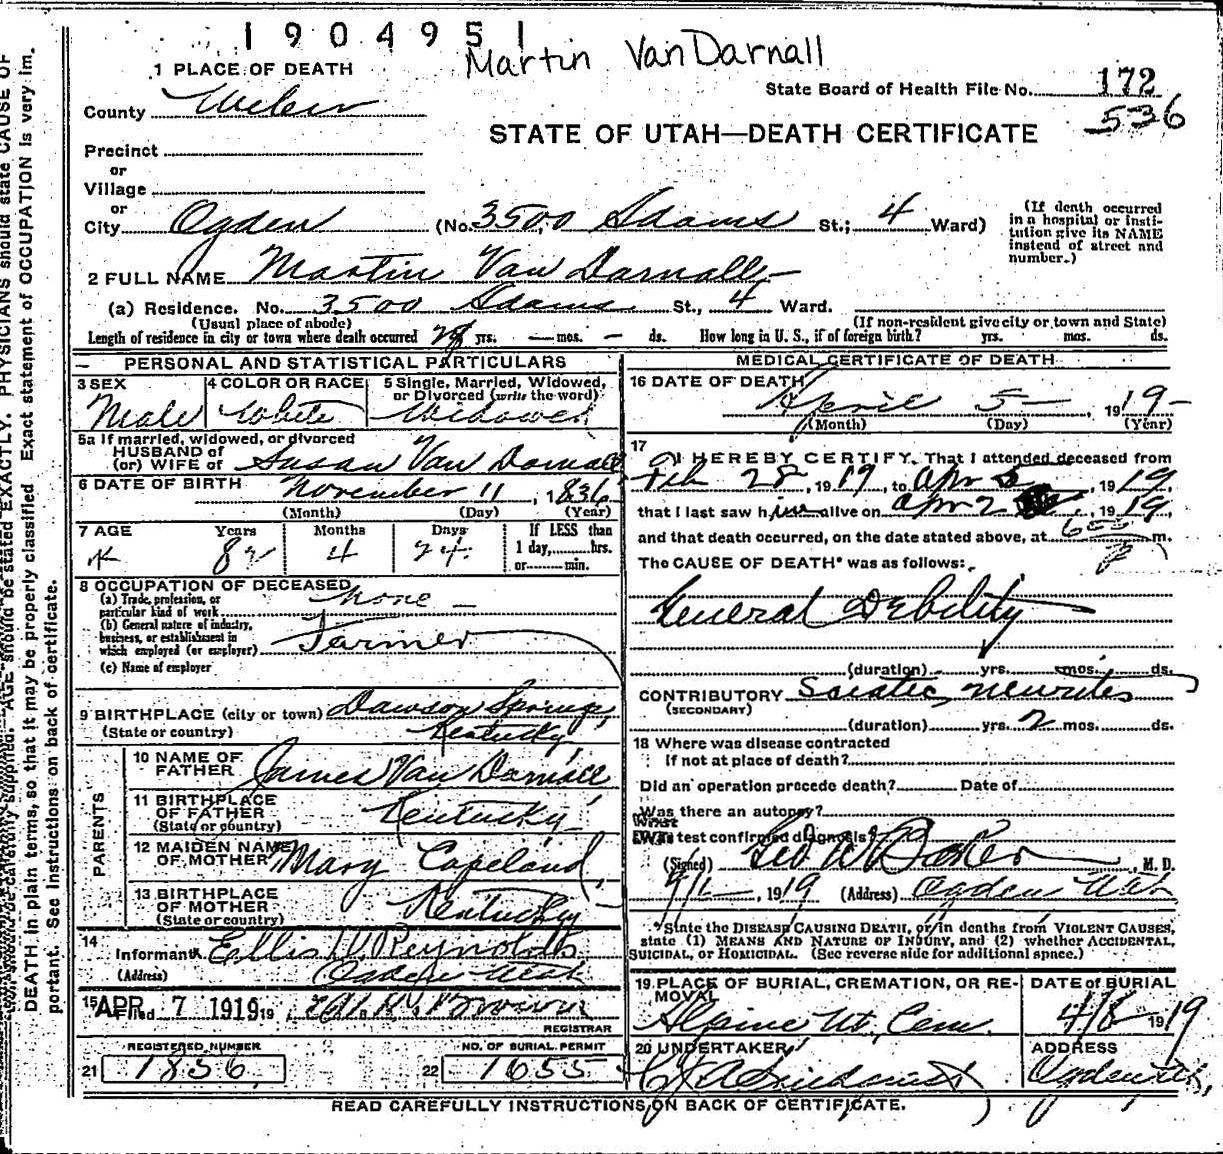 1904951
Martin VanDarnall
1 PLACE OF DEATH
State Board of Health File No. 172
County Weber
536
STATE OF UTAH—DEATH CERTIFICATE
Precinct
or
Village
or
City Ogden (No. 3500 Adams St.; 4 Ward)
(If death occurred in a hospital or insti-
tution give its NAME
instead of street and
number.)
2 FULL NAME Martin Van Darnall
(a) Residence. No. 3500 Adams St., 4 Ward.
(Usual place of abode)
(If non-resident give city or town and State)
Length of residence in city or town where death occurred yrs. — mos. — ds. How long in U. S., if of foreign birth? yrs. mos. ds.
PERSONAL AND STATISTICAL PARTICULARS
3 SEX
Male
4 COLOR OR RACE
White
5 Single, Married, Widowed,
or Divorced (write the word)
Widowed
5a If married, widowed, or divorced
HUSBAND of
(or) WIFE of Susan Van Darnall
6 DATE OF BIRTH November 11, 1836
(Month) (Day) (Year)
7 AGE Years Months Days
82 4 24
If LESS than
1 day, hrs.
or min.
8 OCCUPATION OF DECEASED
(a) Trade, profession, or
particular kind of work None —
(b) General nature of industry,
business, or establishment in
which employed (or employer) Farmer
(c) Name of employer
9 BIRTHPLACE (city or town) Dawson Springs,
(State or country) Kentucky
PARENTS
10 NAME OF
FATHER James Van Darnall
11 BIRTHPLACE
OF FATHER Kentucky
(State or country)
12 MAIDEN NAME
OF MOTHER Mary Copeland
13 BIRTHPLACE
OF MOTHER Kentucky
(State or country)
14
Informant Ellis V. Reynolds
(Address) Ogden Utah
15 APR 7 1919 19
REGISTRAR
REGISTERED NUMBER
21 1856
NO. OF BURIAL PERMIT
22 1655
MEDICAL CERTIFICATE OF DEATH
16 DATE OF DEATH
April 5 — , 1919 —
(Month) (Day) (Year)
17
I HEREBY CERTIFY, That I attended deceased from
Feb 28, 1919, to Apr 5, 1919
that I last saw him alive on Apr 2, 1919,
and that death occurred, on the date stated above, at 6 m.
The CAUSE OF DEATH* was as follows:
General Debility
(duration) yrs. mos. ds.
CONTRIBUTORY Sciatic neurites
(SECONDARY)
(duration) yrs. 2 mos. ds.
18 Where was disease contracted
If not at place of death?
Did an operation precede death? Date of
Was there an autopsy?
What test confirmed diagnosis?
(Signed) Geo W Baker M. D.
, 1919 (Address) Ogden Utah
*State the DISEASE CAUSING DEATH, or in deaths from VIOLENT CAUSES,
state (1) MEANS AND NATURE OF INJURY, and (2) whether ACCIDENTAL,
SUICIDAL, or HOMICIDAL. (See reverse side for additional space.)
19 PLACE OF BURIAL, CREMATION, OR RE-
MOVAL
Alpine Ut. Cem.
DATE of BURIAL
4/8 1919
20 UNDERTAKER
ADDRESS
Ogden, Utah,
READ CAREFULLY INSTRUCTIONS ON BACK OF CERTIFICATE.
PHYSICIANS should state CAUSE OF
DEATH in plain terms, so that it may be properly classified. Exact statement of OCCUPATION is very im-
portant. See Instructions on back of certificate.